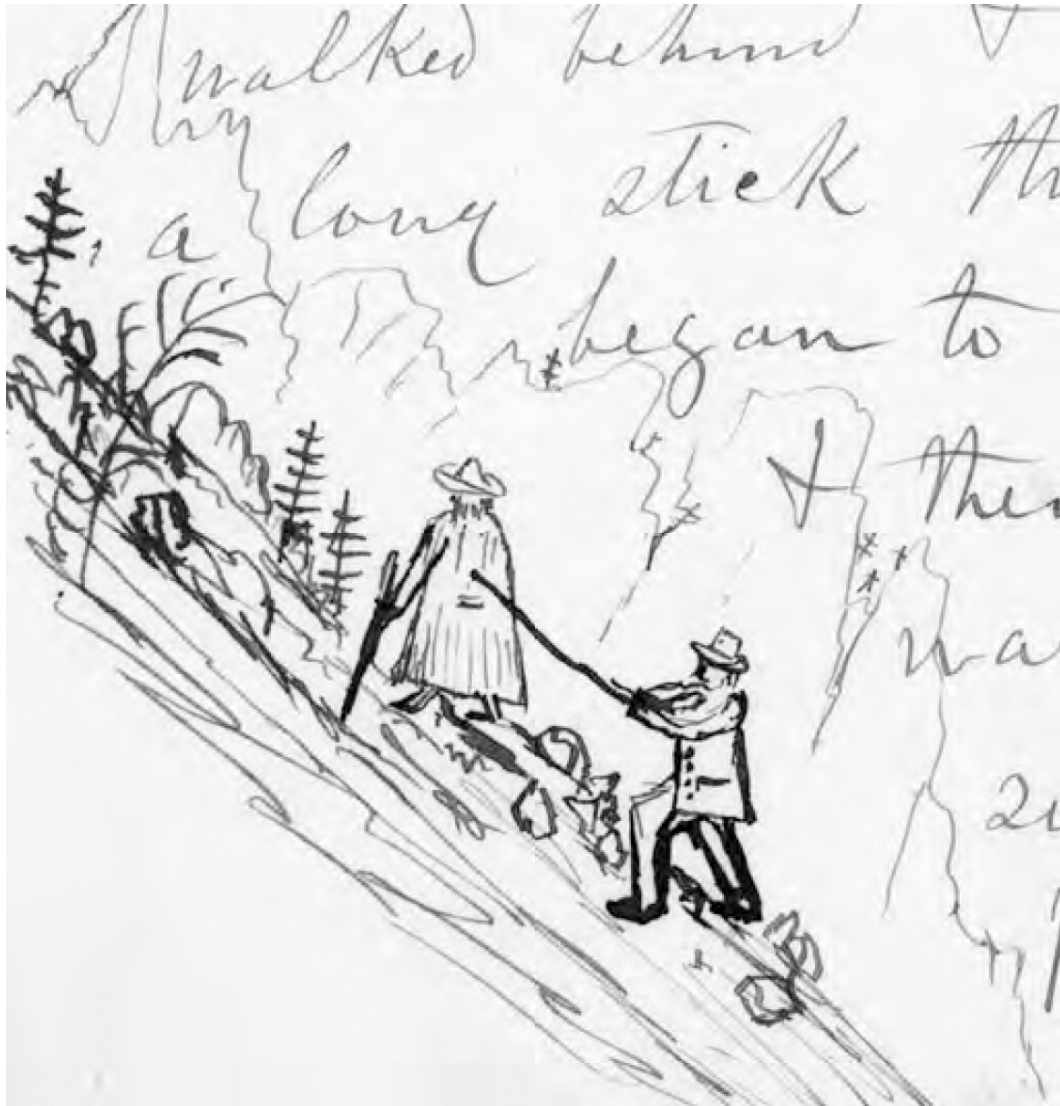 walked behind &
a long stick th
began to
& then
wa